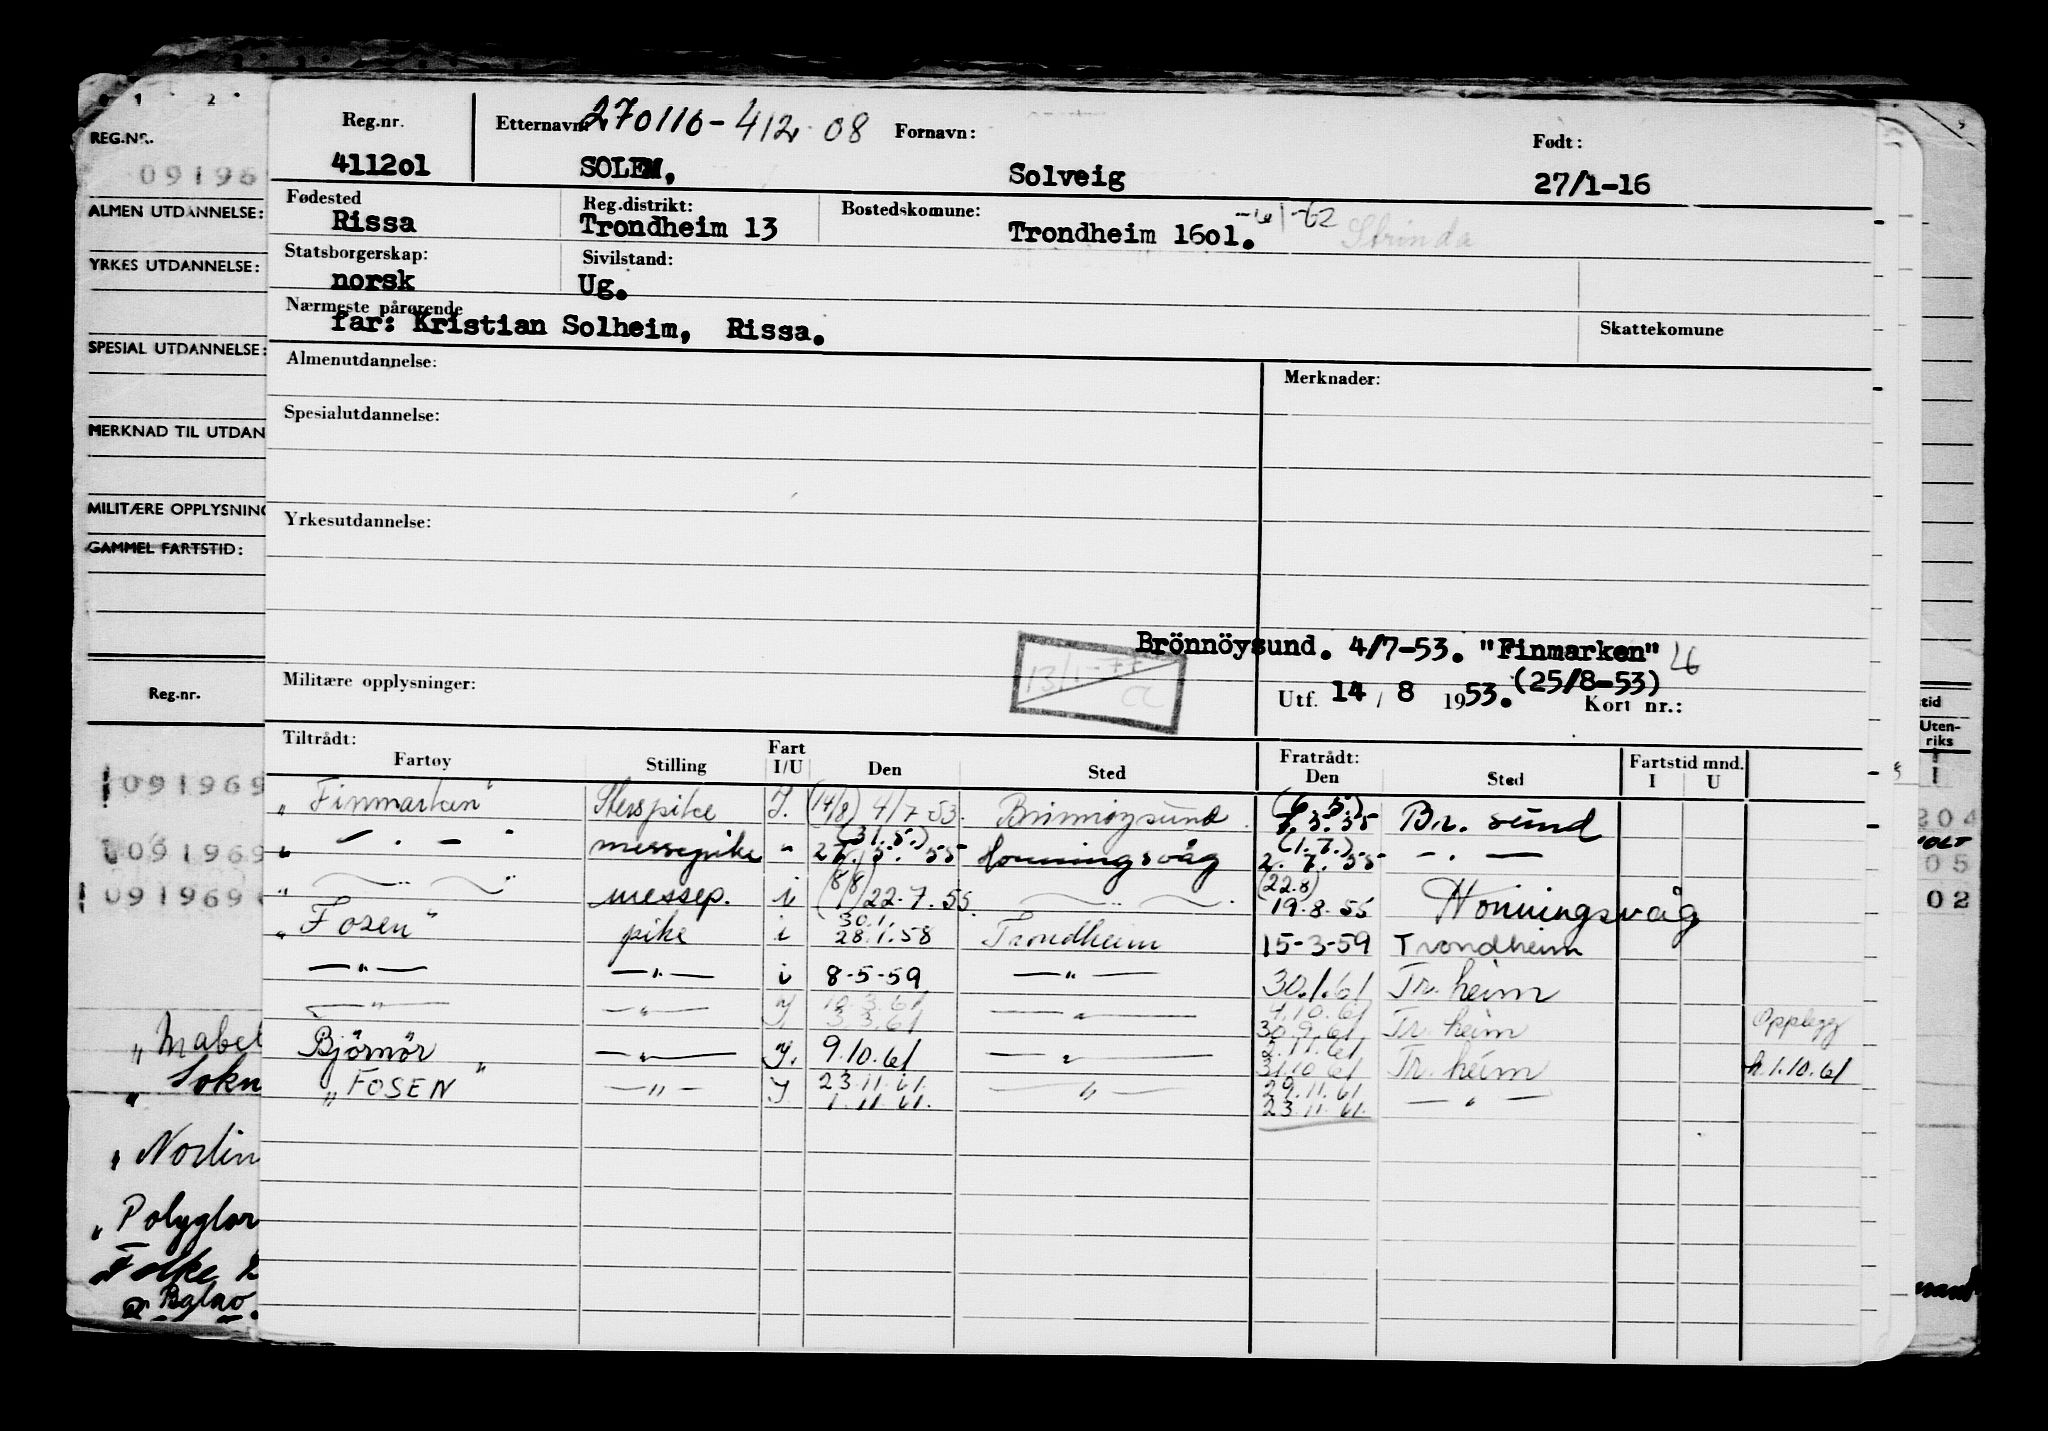 Reg.nr. Etternavn: 270116-412 08 Fornavn: Født:
4112o1 SOLEM, Solveig 27/1-16
Fødested Reg.distrikt: Bostedskomune:
Rissa Trondheim 13 Trondheim 16o1. 1-62 Strinda
Statsborgerskap: Sivilstand:
norsk Ug.
Nærmeste pårørende Skattekomune
far: Kristian Solheim, Rissa.
Almenutdannelse: Merknader:
Spesialutdannelse:
Yrkesutdannelse:
Brönnöysund. 4/7-53. "Finmarken"
13/1-77
CC
Militære opplysninger: Utf. 14 / 8 1953. (25/8-53) Kort nr.:
Tiltrådt: Fratrådt: Fartstid mnd.
Fartøy Stilling Fart I/U Den Sted Den Sted I U
"Finmarken" Sterspike I. (14/8) 4/7-53. Brönnöysund (6.5.) 7.5.55 Br. sund
" - . - " messepike " (31.5.) 27.5.55 Honningsvåg (1.7.) 2.7.55 - . -
" - " - " messep. i (8/8) 22.7.55. - " - (22.8) 19.8.55 Honningsvåg
"Fosen" pike i 30.1. 28.1.58 Trondheim 15-3-59 Trondheim
- " - - " - i 8-5-59 - " - 30.1.61 Tr.heim
- " - - " - I 10.3.61 3.3.61 - " - 4.10.61 30.9.61 Tr.heim Opplegg
Björnör " - " - I. 9.10.61 - " - 2.11.61 31.10.61 Tr.heim h.1.10.61
"FOSEN - " - I 23.11.61. 1.11.61. - " - 29.11.61 23.11.61. - " -
0 1 2
REG.NR.
09196
ALMEN UTDANNELSE:
YRKES UTDANNELSE:
SPESIAL UTDANNELSE:
MERKNAD TIL UTDAN
MILITÆRE OPPLYSNING
GAMMEL FARTSTID:
Reg.nr.
091969
091969
091969
"Mabel
"Sokn
"Norlin
"Polyglor
Folke 2
tid
Uten-
riks
1
204
05
02